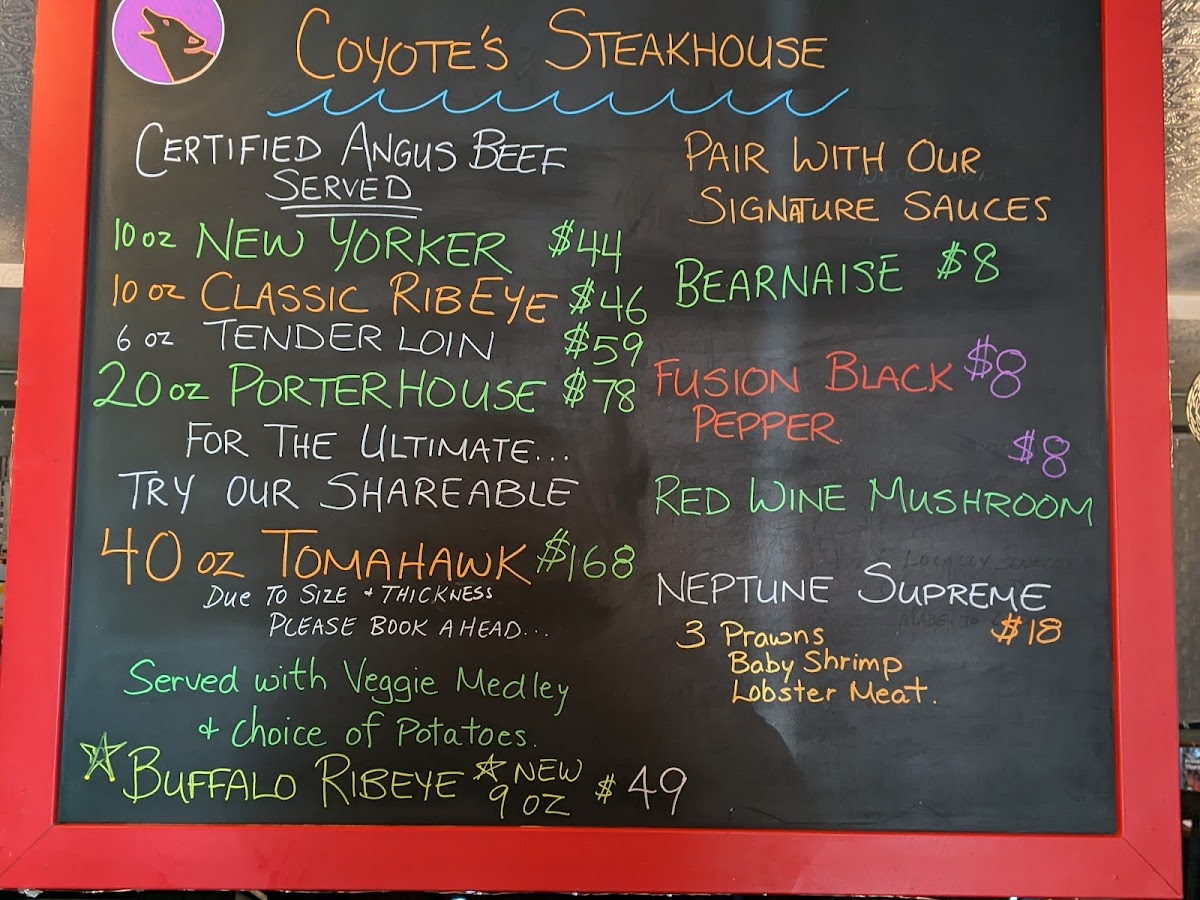 COYOTE'S STEAKHOUSE
CERTIFIED ANGUS BEEF
SERVED
10 oz NEW YORKER $44
10 oz CLASSIC RIBEYE $46
6 oz TENDERLOIN $59
20 oz PORTERHOUSE $78
FOR THE ULTIMATE...
TRY OUR SHAREABLE
40 oz TOMAHAWK $168
DUE TO SIZE + THICKNESS
PLEASE BOOK AHEAD...
Served with Veggie Medley
+ Choice of Potatoes.
BUFFALO RIBEYE NEW
9 OZ $49
PAIR WITH OUR
SIGNATURE SAUCES
BEARNAISE $8
FUSION BLACK $8
PEPPER.
$8
RED WINE MUSHROOM
NEPTUNE SUPREME
3 Prawns $18
Baby Shrimp
Lobster Meat.